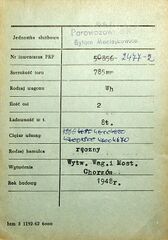 Jednostka służbowa Parowozownia
Bytom Maciejkowice
Nr inwentarza PKP 50856- 2477-2
Szerokość toru 785mm
Rodzaj wagonu Wh
Ilość osi 2
Ładowność w t. 8t.
Ciężar własny
Rodzaj hamulca ręczny
Wytwórnia Wytw. Wag. i Most.
Chorzów
Rok budowy 1948r.